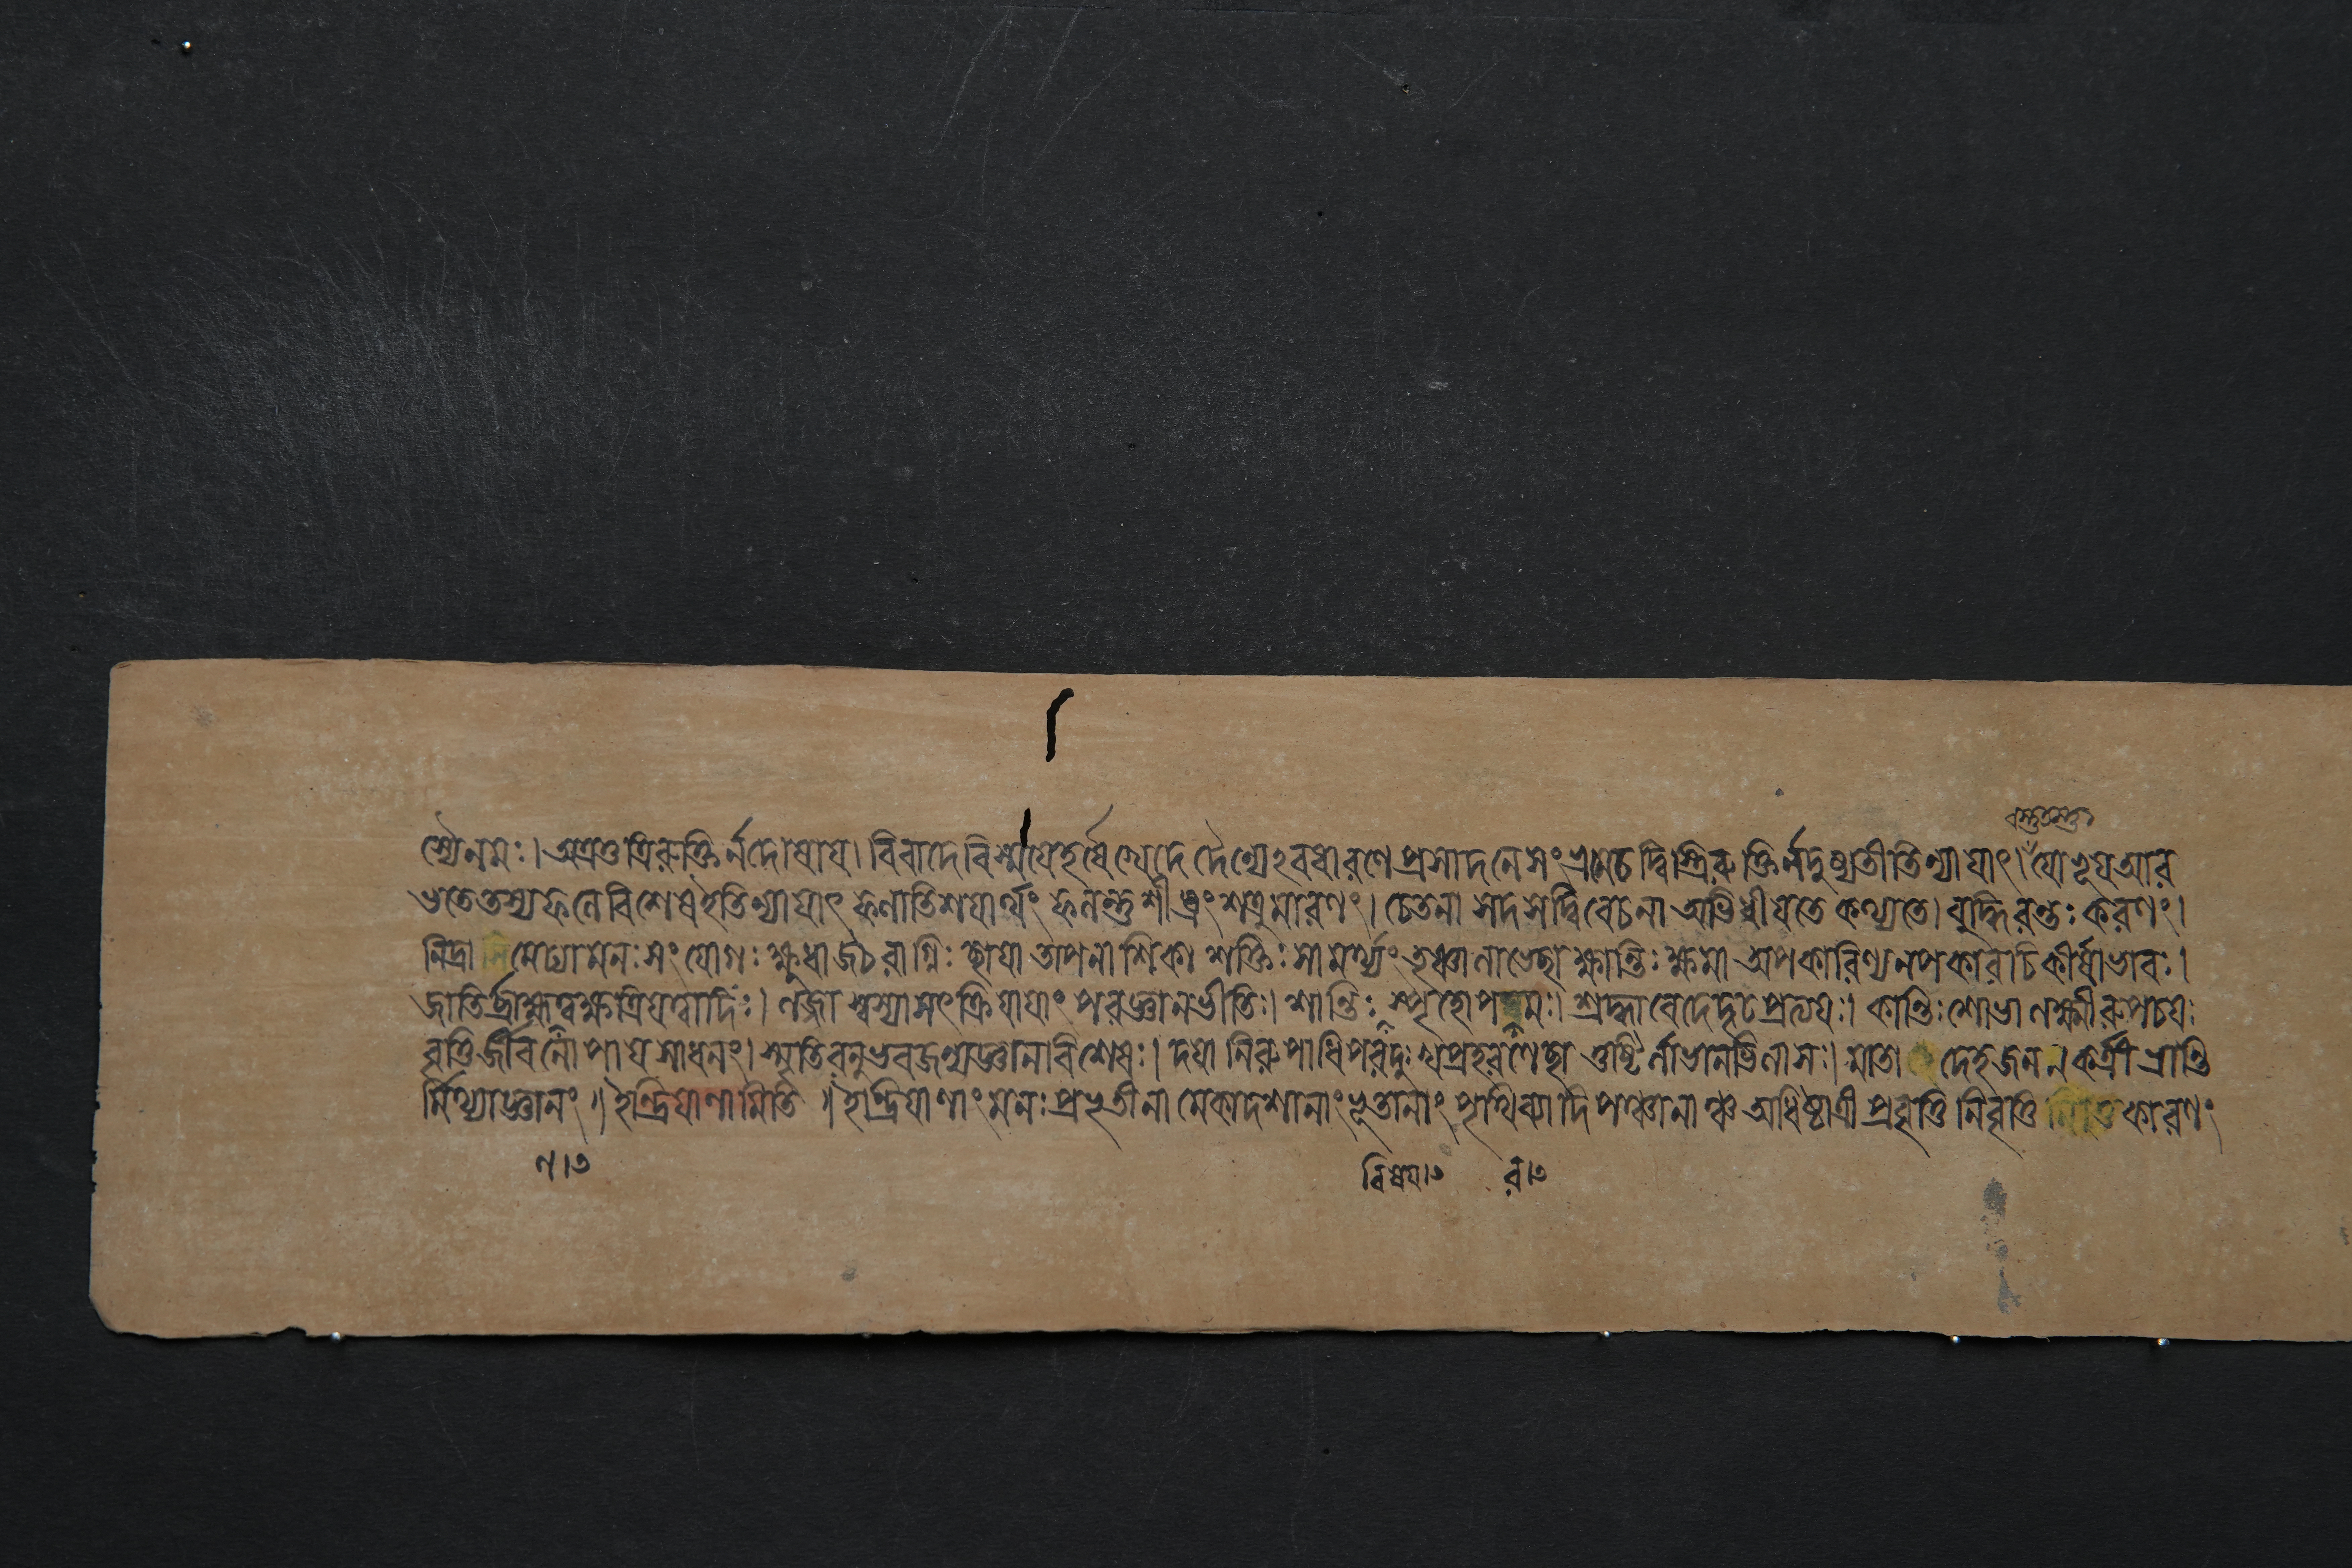 বস্তুতস্তু
স্যৈনমঃ। অত্রতু ত্রিরুক্তি র্নদোষায। বিবাদে বিস্মযেহর্ষে খেদে দৈন্যেঽবধারণে প্রসাদনে সংভ্রমেচ দ্বিস্ত্রিরুক্তি র্নদুষ্যতীতি ন্যাযাৎ। যোভূয আর
ভতে তস্য ফলে বিশেষ ইতি ন্যাযাৎ ফলাতিশযার্থং ফলন্তু শীঘ্রং শত্রুমারণং। চেতনা সদসদ্বিবেচনা অভিধীযতে কথ্যতে। বুদ্ধিরন্তঃ করণং।
নিদ্রা মেধ্যামনঃ সংযোগঃ ক্ষুধা জঠরাগ্নিঃ ছাযা তাপনাশিকা শক্তিঃ সামর্থ্যং তৃষ্ণা লাভেচ্ছা ক্ষান্তিঃ ক্ষমা অপকারিণ্যনপকারচিকীর্ষাভাবঃ।
জাতির্ব্রাহ্মত্বক্ষত্রিযত্বাদিঃ। লজ্জা স্বস্যাসৎক্রিযাযাং পরজ্ঞানভীতিঃ। শান্তিঃ স্পৃহোপমঃ। শ্রদ্ধা বেদেদৃঢপ্রত্যযঃ। কান্তিঃ শোভা লক্ষ্মীরুপচযঃ
বৃত্তির্জীবনোপাযসাধনং। স্মৃতিরনুভবজন্যজ্ঞানবিশেষঃ। দযা নিরুপাধিপরদুঃখপ্রহরণেচ্ছা তুষ্টির্লাভানভিলাসঃ। মাতা দেহজননকর্ত্রী ভ্রান্তি
র্মিথ্যাজ্ঞানং॥ ইন্দ্রিযাণামিতি॥ ইন্দ্রিযাণাং মনঃ প্রভৃতীনামেকাদশানাং ভূতানাং পৃথিব্যাদিপঞ্চানাঞ্চ অধিষ্ঠাত্রী প্রবৃত্তি নিবৃত্তি কারণং
ল।৩ বিষেয।৩ র।৩